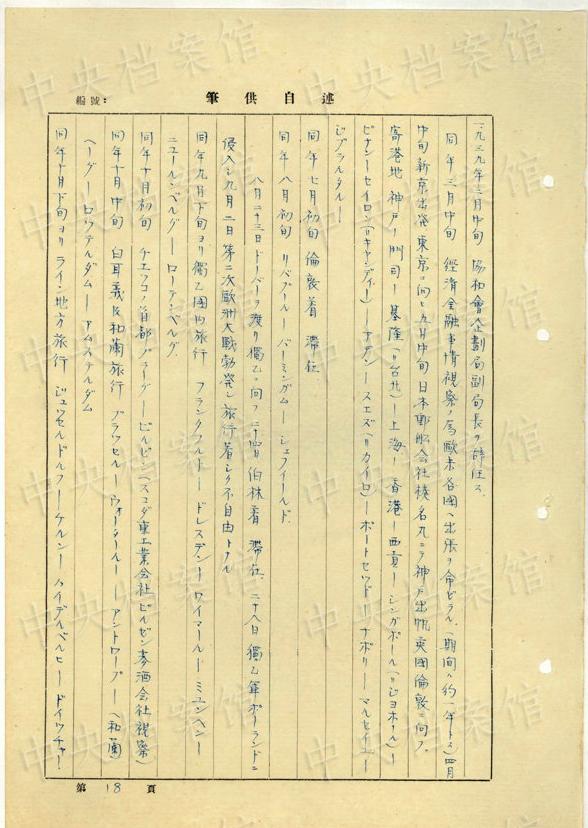 筆供自述
編號：
一九三九年三月中旬 協和會企劃局副局長ヲ辞任ス.
同年三月中旬 經済金融事情視察ノ為歐米各國ヘ出張ヲ命ゼラル.(期間ハ約一年トス)四月
中旬新京出発東京ニ向ヒ九月中旬日本郵船会社榛名丸ニテ神戸出帆英國倫敦ニ向フ.
寄港地 神戸ー門司ー基隆(リ台北)ー上海ー香港ー西貢ーシンガポール(リジヨホール)ー
ピナンーセイロン(リキャンディー)ーアデンースエズ(リカイロ)ーポートセツドーナポリーマルセイユー
ジブラルタルー
同年七月初旬倫敦着 滞在
同年八月初旬 リバプールーバーミンガムーシェフィールド
八月二十三日ドーバーヲ渡リ獨乙ニ向フ 二十四日伯林着 滞在. 二十八日獨乙軍ポーランドニ
侵入シ九月二日第二次歐洲大戰勃発シ旅行着シク不自由トナル
同年九月下旬ヨリ獨乙國内旅行 フランクフルトードレスデンーワイマールーミュンヘンー
ニユールンベルグーローテンベルグ
同年十月初旬 チエッコノ首都プラーグーピルゼン(スコダ重工業会社ピルゼン麥酒会社視察)
同年十月中旬 白耳義及和蘭旅行 ブラッセルーウォータールーーアントワープー(和蘭)
ヘーグーロッテルダムーアムステルダム
同年十月下旬ヨリライン地方旅行 ジュッセルドルフーケルンーハイデルベルヒードイッチャー
第 18 頁
中央档案馆